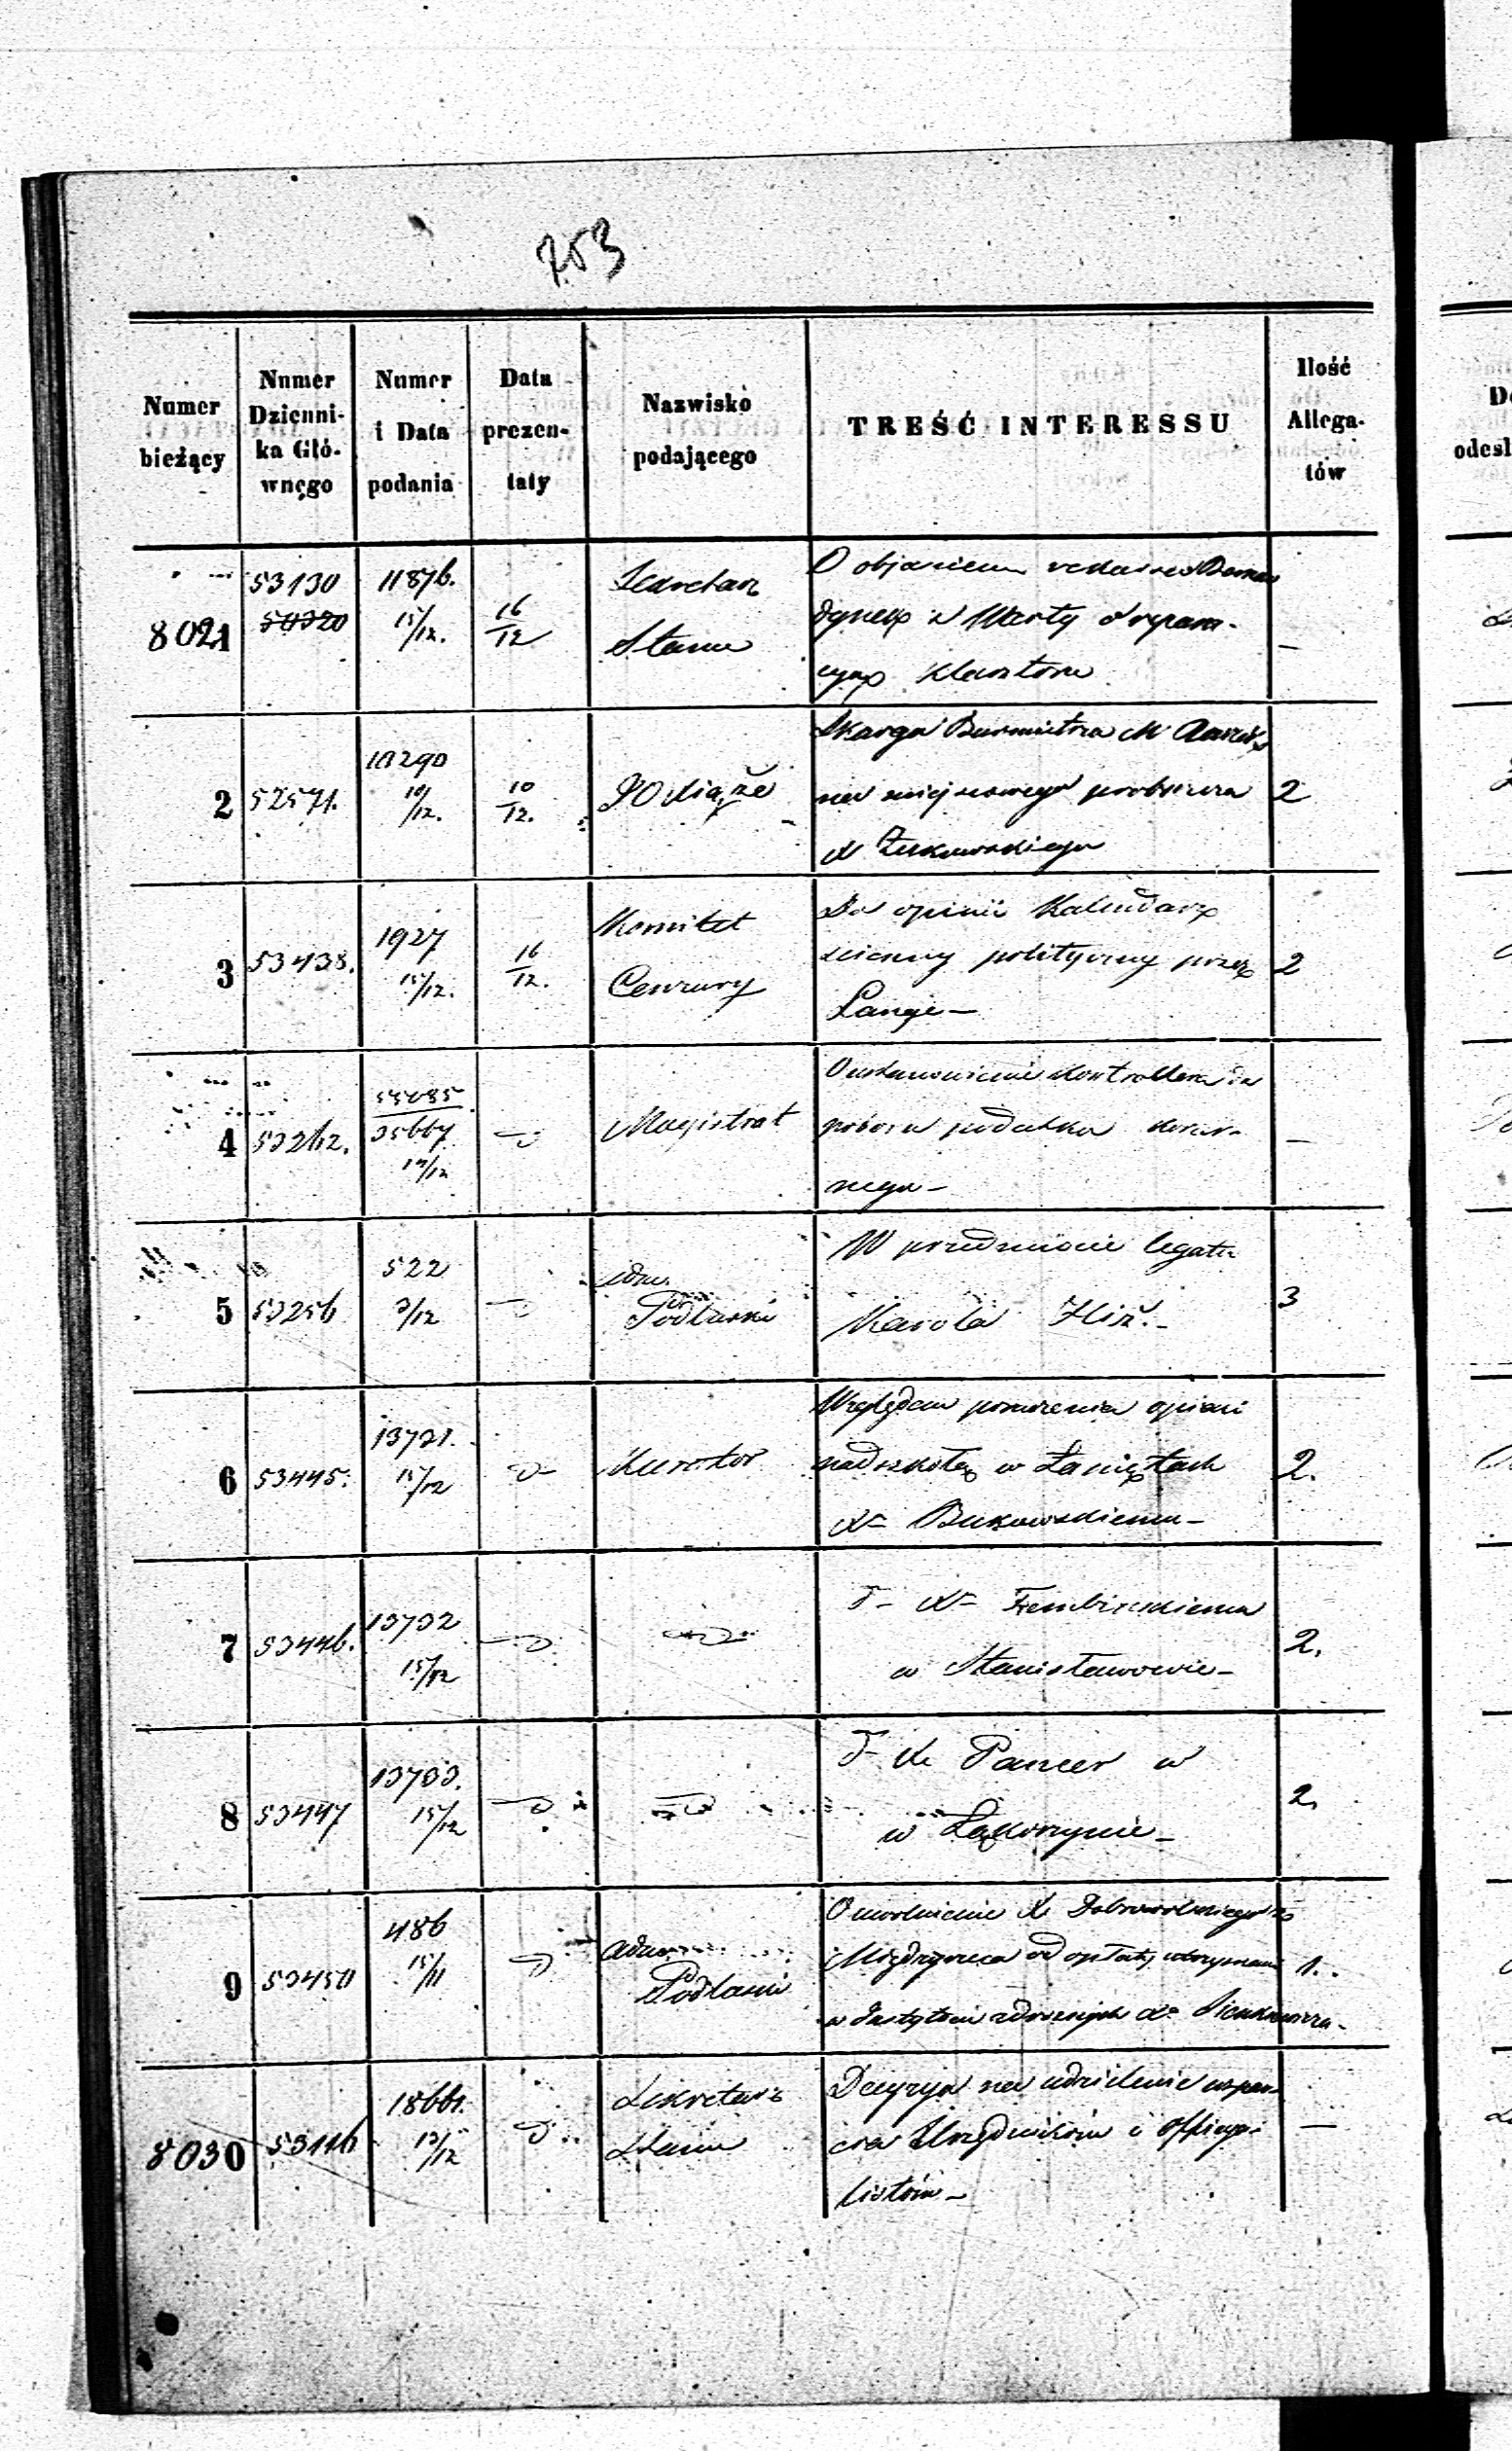 753
Numer bieżący
Numer Dzienni-ka Głó-wnego
Numer i Data podania
Data prezen-taty
Nazwisko podającego
TREŚĆ INTERESSU
Ilość Allega-tów
8021
53130
50320
11876.
15/12.
16/12
Sekretarz
Stanu
O objaśnienie
z Warty o repara-
cyą Klasztoru
—
2
52571.
10290
10/12.
10/12.
Skarga Burmistrza M
na miejscowego proboszcza
X Żukowskiego
2
3
53438.
1927
15/12.
16/12.
Komitet
Cenzury
Do opinii Kalendarz
ścienny polityczny przez
Lange —
2
4
53262.
35667
14/12
Magistrat
O ustanowienie Kontrollera do
poboru podatku
nego —
—
5
53256
522
3/12
Podlaski
W przedmiocie legatu
Karola
3
6
53445.
13731.
15/12
Kurator
Względem poruczenia opieki
nad szkołą w Łaniętach
Xu Bukowskiemu —
2.
7
53446.
13732
15/12
w Stanisławowie —
2.
8
53447
13733.
15/12
X Pancer w
w Łąkoszynie —
2.
9
53450
486
15/11
Adm
Podlaski
O uwolnienie X Dobrowolskiego z
Międzyrzeca od opłaty utrzymania
1.
8030
53116
18661.
13/12
Sekretarz
Stanu
Decyzya na udzielenie wspar-
cia Urzędników i Officya-
listów —
—